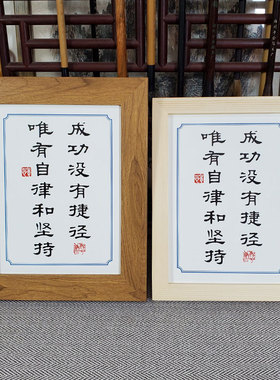 成功没有捷径
唯有自律和坚持
成功没有捷径
唯有自律和坚持